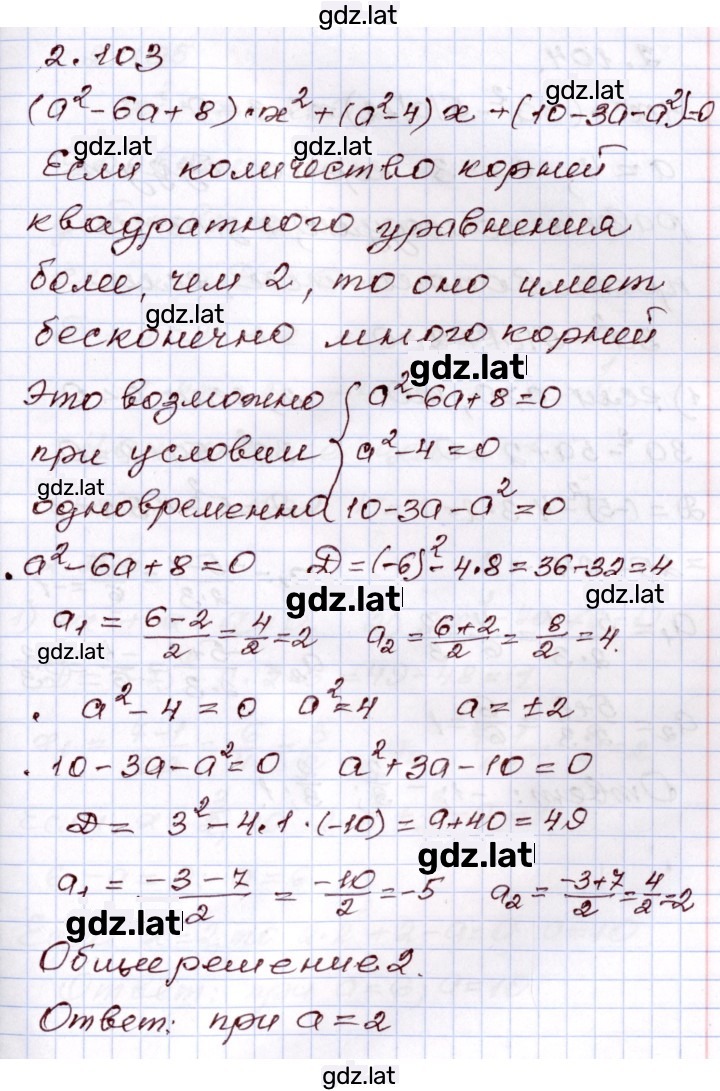 gdz.lat
2.103
gdz.lat
(a²-6a+8)·x²+(a²-4)x+(10-3a-a²)=0
gdz.lat gdz.lat
Если количество корней
квадратного уравнения
более, чем 2, то оно имеет
gdz.lat
бесконечно много корней
gdz.lat
Это возможно { a²-6a+8=0
при условии a²-4=0
gdz.lat
одновременно 10-3a-a²=0
·a²-6a+8=0 Д=(-6)²-4·8=36-32=4
gdz.lat gdz.lat
a₁= (6-2)/2 = 4/2 =2 a₂= (6+2)/2 = 8/2 =4.
gdz.lat
· a²-4=0 a²=4 a=±2
·10-3a-a²=0 a²+3a-10=0
Д= 3²-4·1·(-10)=9+40=49
gdz.lat
a₁= (-3-7)/2 = -10/2 =-5 a₂= (-3+7)/2 = 4/2 =2
gdz.lat
Общее решение 2.
Ответ: при a=2
gdz.lat